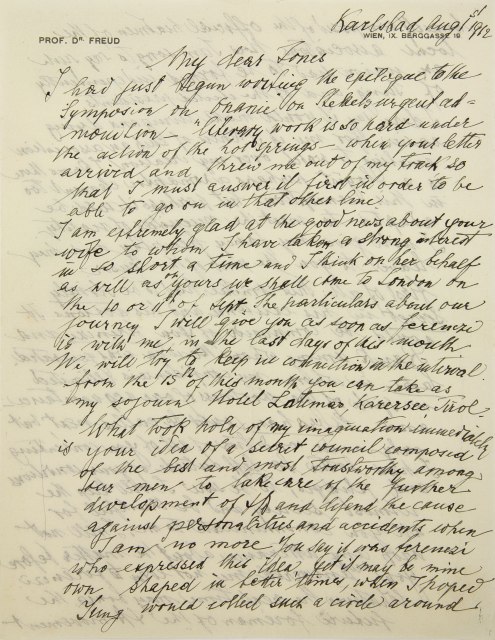 Karlsbad Aug 1st 1912
PROF. DR. FREUD
WIEN, IX. BERGGASSE 19
My dear Jones
I had just begun writing the epilogue to the
Symposion on Onanie on Stekels urgent ad-
monition – literary work is so hard under
the action of the hot springs – when your letter
arrived and threw me out of my track so
that I must answer it first in order to be
able to go on in that other line.
I am extremely glad at the good news about your
wife to whom I have taken a strong interest
in so short a time and I think on her behalf
as well as on yours we shall come to London on
the 10 or 11th of Sept. The particulars about our
journey I will give you as soon as Ferenczi
is with me, in the last days of this month
We will try to keep in connection in the interval
from the 15th of this month you can take as
my sojourn Hotel Latemar Karersee, Tirol
What took hold of my imagination immediately
is your idea of a secret council composed
of the best and most trustworthy among
our men to take care of the further
development of ψα and defend the cause
against personalities and accidents when
I am no more. You say it was Ferenczi
who expressed this idea, yet it may be mine
own shaped in better times, when I hoped
Jung would collect such a circle around